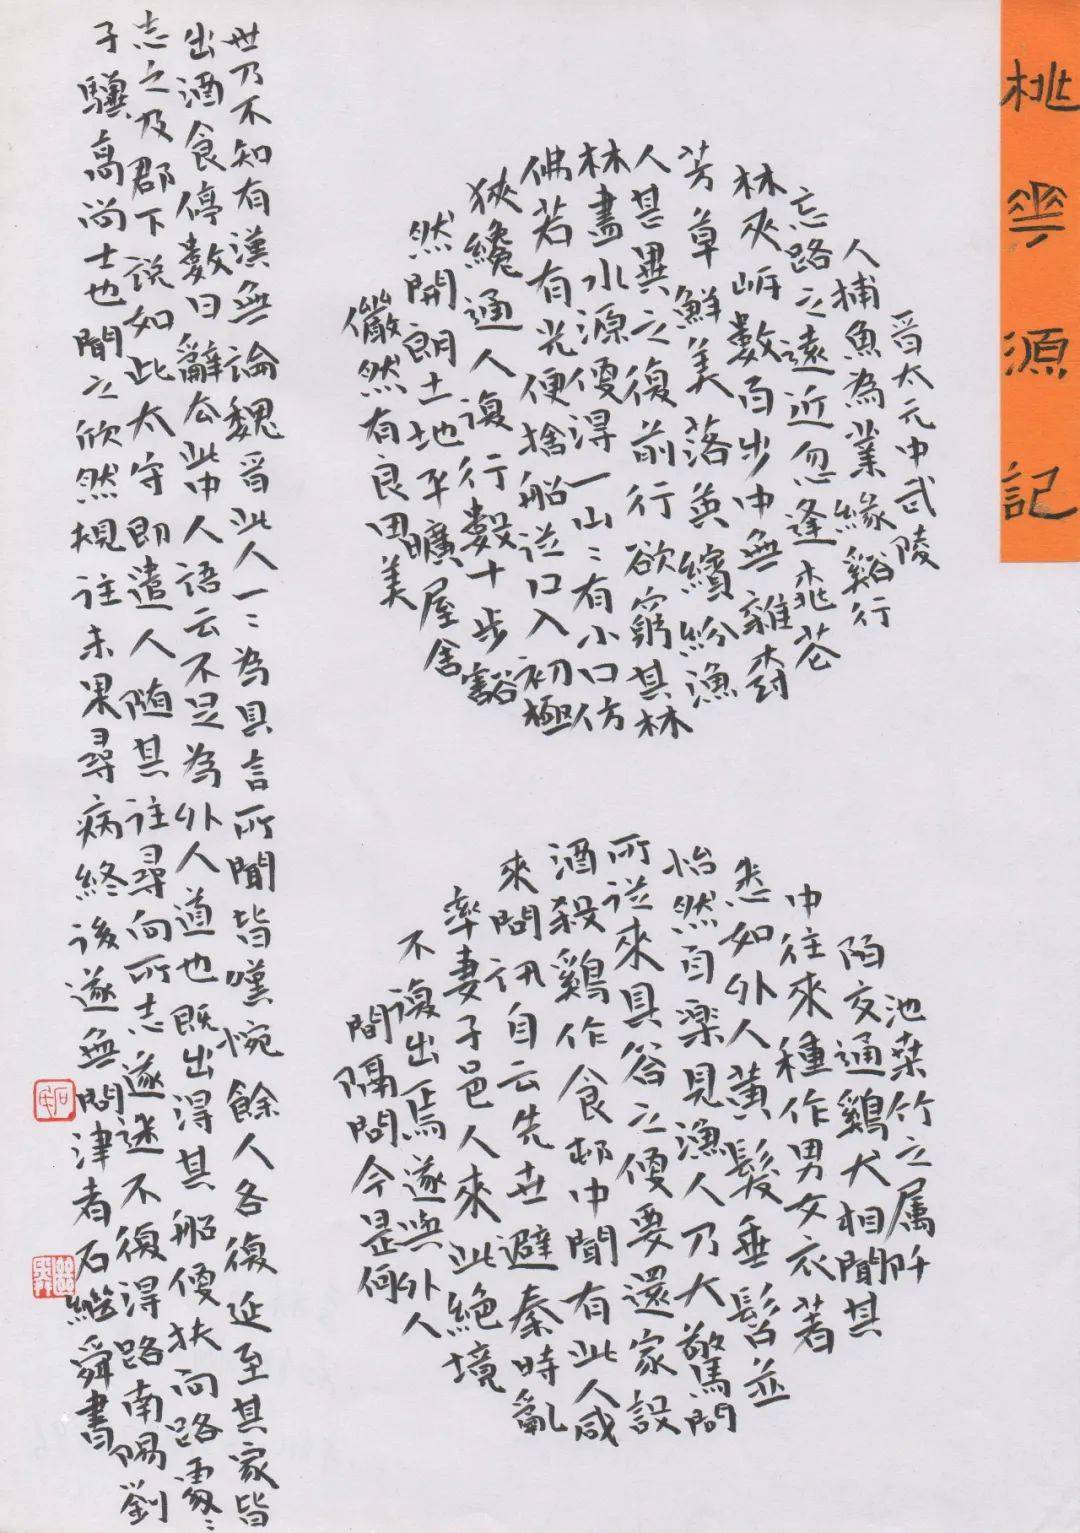 桃華源記
晉太元中武陵
人捕魚為業緣谿行
忘路之遠近忽逢桃花
林夾岸數百步中無雜樹
芳草鮮美落英繽紛漁
人甚異之復前行欲窮其林
林盡水源便得一山〻有小口仿
佛若有光便捨船從口入初極
狹纔通人復行數十步豁
然開朗土地平曠屋舍
儼然有良田美
池桑竹之屬阡
陌交通鷄犬相聞其
中往來種作男女衣著
悉如外人黃髮垂髫並
怡然自樂見漁人乃大驚問
所從來具答之便要還家設
酒殺鷄作食邨中聞有此人咸
來問訊自云先世避秦時亂
率妻子邑人來此絕境
不復出焉遂與外人
間隔問今是何
世乃不知有漢無論魏晉此人一〻為具言所聞皆嘆惋餘人各復延至其家皆
出酒食停數日辭去此中人語云不足為外人道也既出得其船便扶向路處〻
志之及郡下說如此太守即遣人隨其往尋向所志遂迷不復得路南陽劉
子驥高尚士也聞之欣然規往未果尋病終後遂無問津者石繼舜書